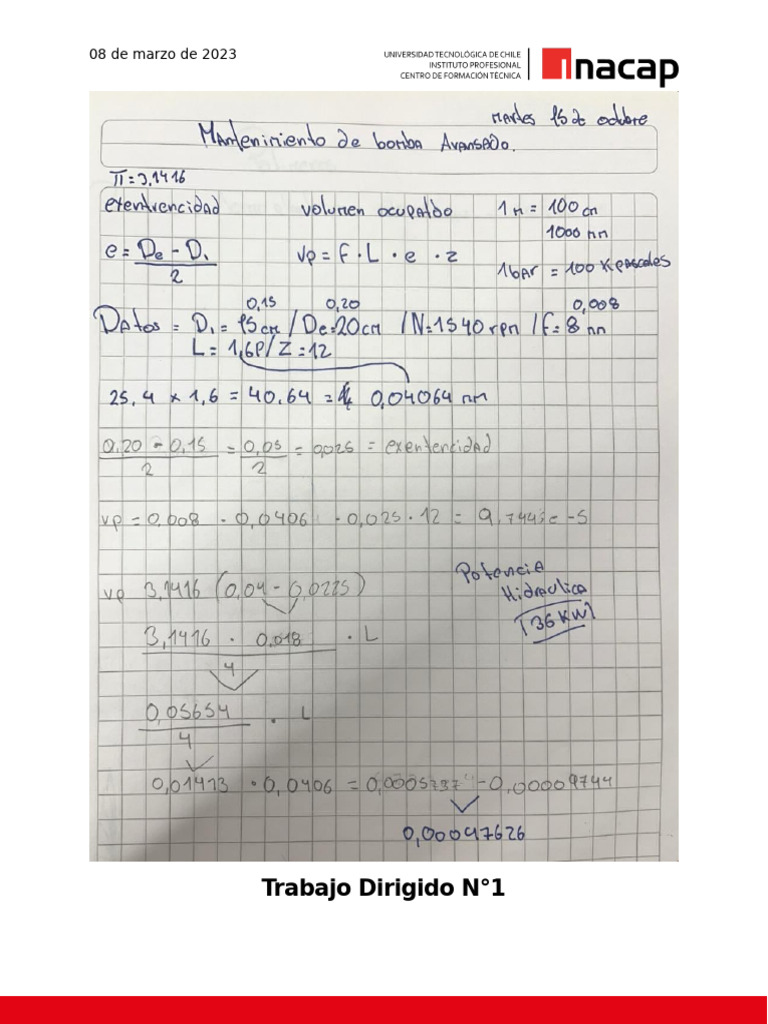 08 de marzo de 2023
UNIVERSIDAD TECNOLÓGICA DE CHILE
INSTITUTO PROFESIONAL
CENTRO DE FORMACIÓN TÉCNICA
inacap
Martes 15 de octubre
Mantenimiento de bomba Avansado.
π = 3,1416
extentrencidad volumen ocupatdo 1 m = 100 cm
1000 mm
e = De - Di / 2 vp = f · L · e · z
1 bar = 100 Kpascales
0,15 0,20 0,008
Datos = Di = 15cm / De = 20cm / N = 1540 rpm / f = 8 mm
L = 1,6P / Z = 12
25,4 x 1,6 = 40,64 = 0,04064 mm
0,20 - 0,15 / 2 = 0,05 / 2 = 0,025 = exentencidad
vp = 0,008 · 0,0406 · 0,025 · 12 = 9,744 e-5
vp 3,1416 (0,04 - 0,0225)
Potencia
Hidraulica
36 KW
3,1416 · 0,018 / 4 · L
0,05654 / 4 · L
0,01413 · 0,0406 = 0,0005737 - 0,00009744
0,00047626
Trabajo Dirigido N°1